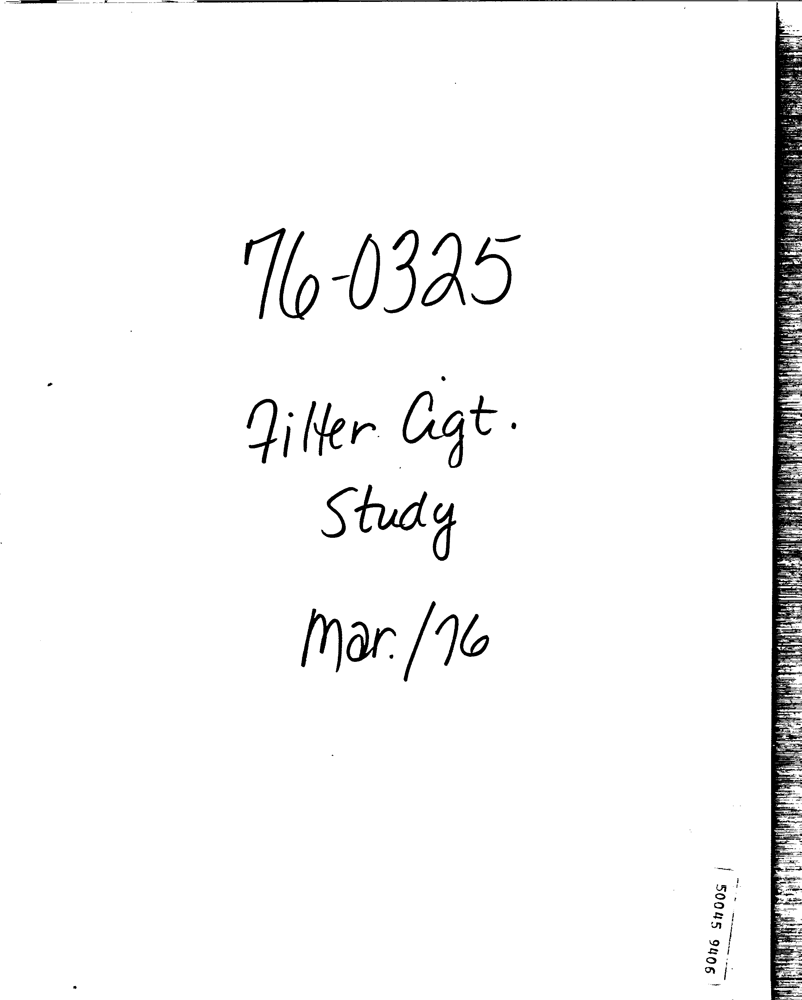 76-0325
Filter Cigt.
Study
Mar./76
50045 9406